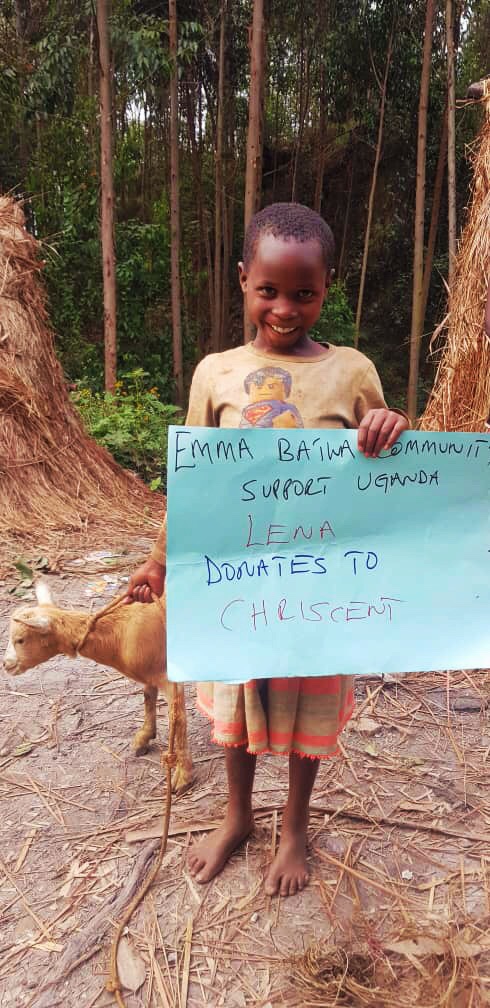 EMMA BATWA COMMUNIT
SUPPORT UGANDA
LENA
DONATES TO
CHRISCENT